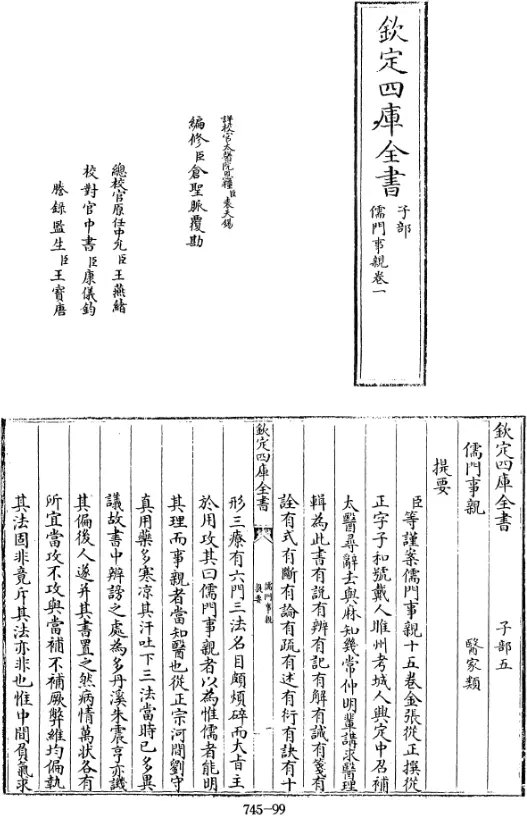 欽定四庫全書
子部
儒門事親卷一
詳校官太醫院恩糧臣袁天錫
編修臣倉聖脈覆勘
總校官原任中允臣王燕緒
校對官中書臣康儀鈞
謄錄監生臣王寶唐
欽定四庫全書 子部五
儒門事親 醫家類
提要
臣等謹案儒門事親十五卷金張從正撰從
正字子和號戴人睢州考城人興定中召補
太醫尋辭去與麻知幾常仲明輩講求醫理
輯為此書有說有辨有記有解有誡有箋有
詮有式有斷有論有疏有述有衍有訣有十
欽定四庫全書
儒門事親
提要
一
形三療有六門三法名目頗煩碎而大㫖主
於用攻其曰儒門事親者以為惟儒者能明
其理而事親者當知醫也從正宗河間劉守
真用藥多寒凉其汗吐下三法當時已多異
議故書中辨謗之處為多丹溪朱震亨亦譏
其偏後人遂并其書置之然病情萬狀各有
所宜當攻不攻與當補不補厥弊維均偏執
其法固非竟斥其法亦非也惟中間負氣求
745-99